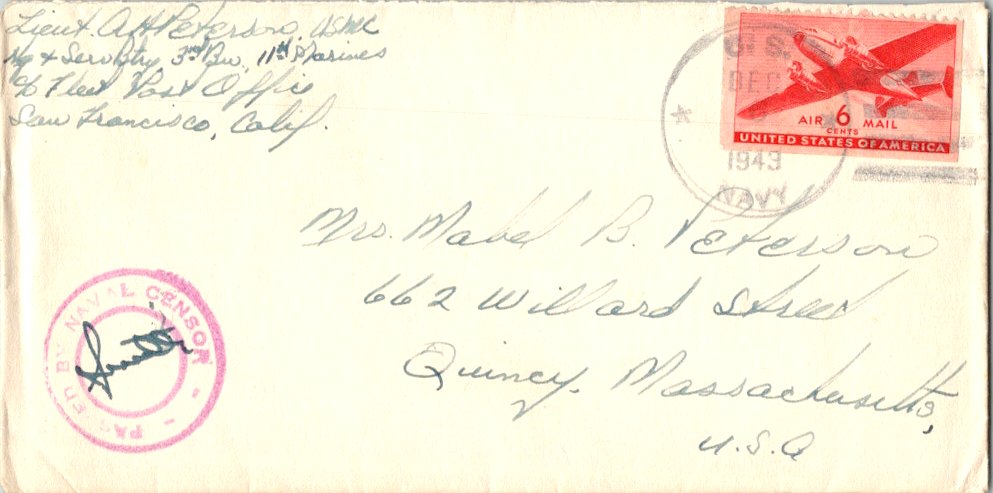 Lieut. A H Peterson, USMC
Hq & Serv Btry 3rd Bn. 11th Marines
c/o Fleet Post Office
San Francisco, Calif.
U.S.
DEC
1943
NAVY
AIR 6 MAIL
CENTS
UNITED STATES OF AMERICA
Mrs. Mabel B. Peterson
662 Willard Street
Quincy, Massachusetts,
U.S.A
PASSED BY NAVAL CENSOR